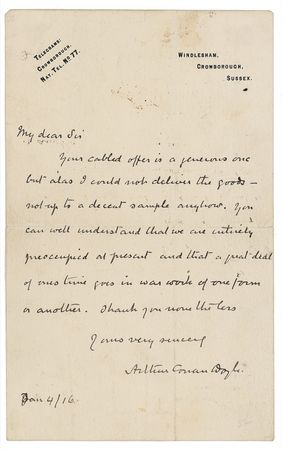 TELEGRAMS:
CROWBOROUGH.
NAT. TEL. No 77.
WINDLESHAM,
CROWBOROUGH,
SUSSEX.
My dear Sir
Your cabled offer is a generous one
but alas I could not deliver the goods –
not up to a decent sample anyhow. You
can well understand that we are entirely
preoccupied at present and that a great deal
of ones time goes in war work of one form
or another. Thank you none the less
Yours very sincerely
Arthur Conan Doyle.
Jan 4/16.